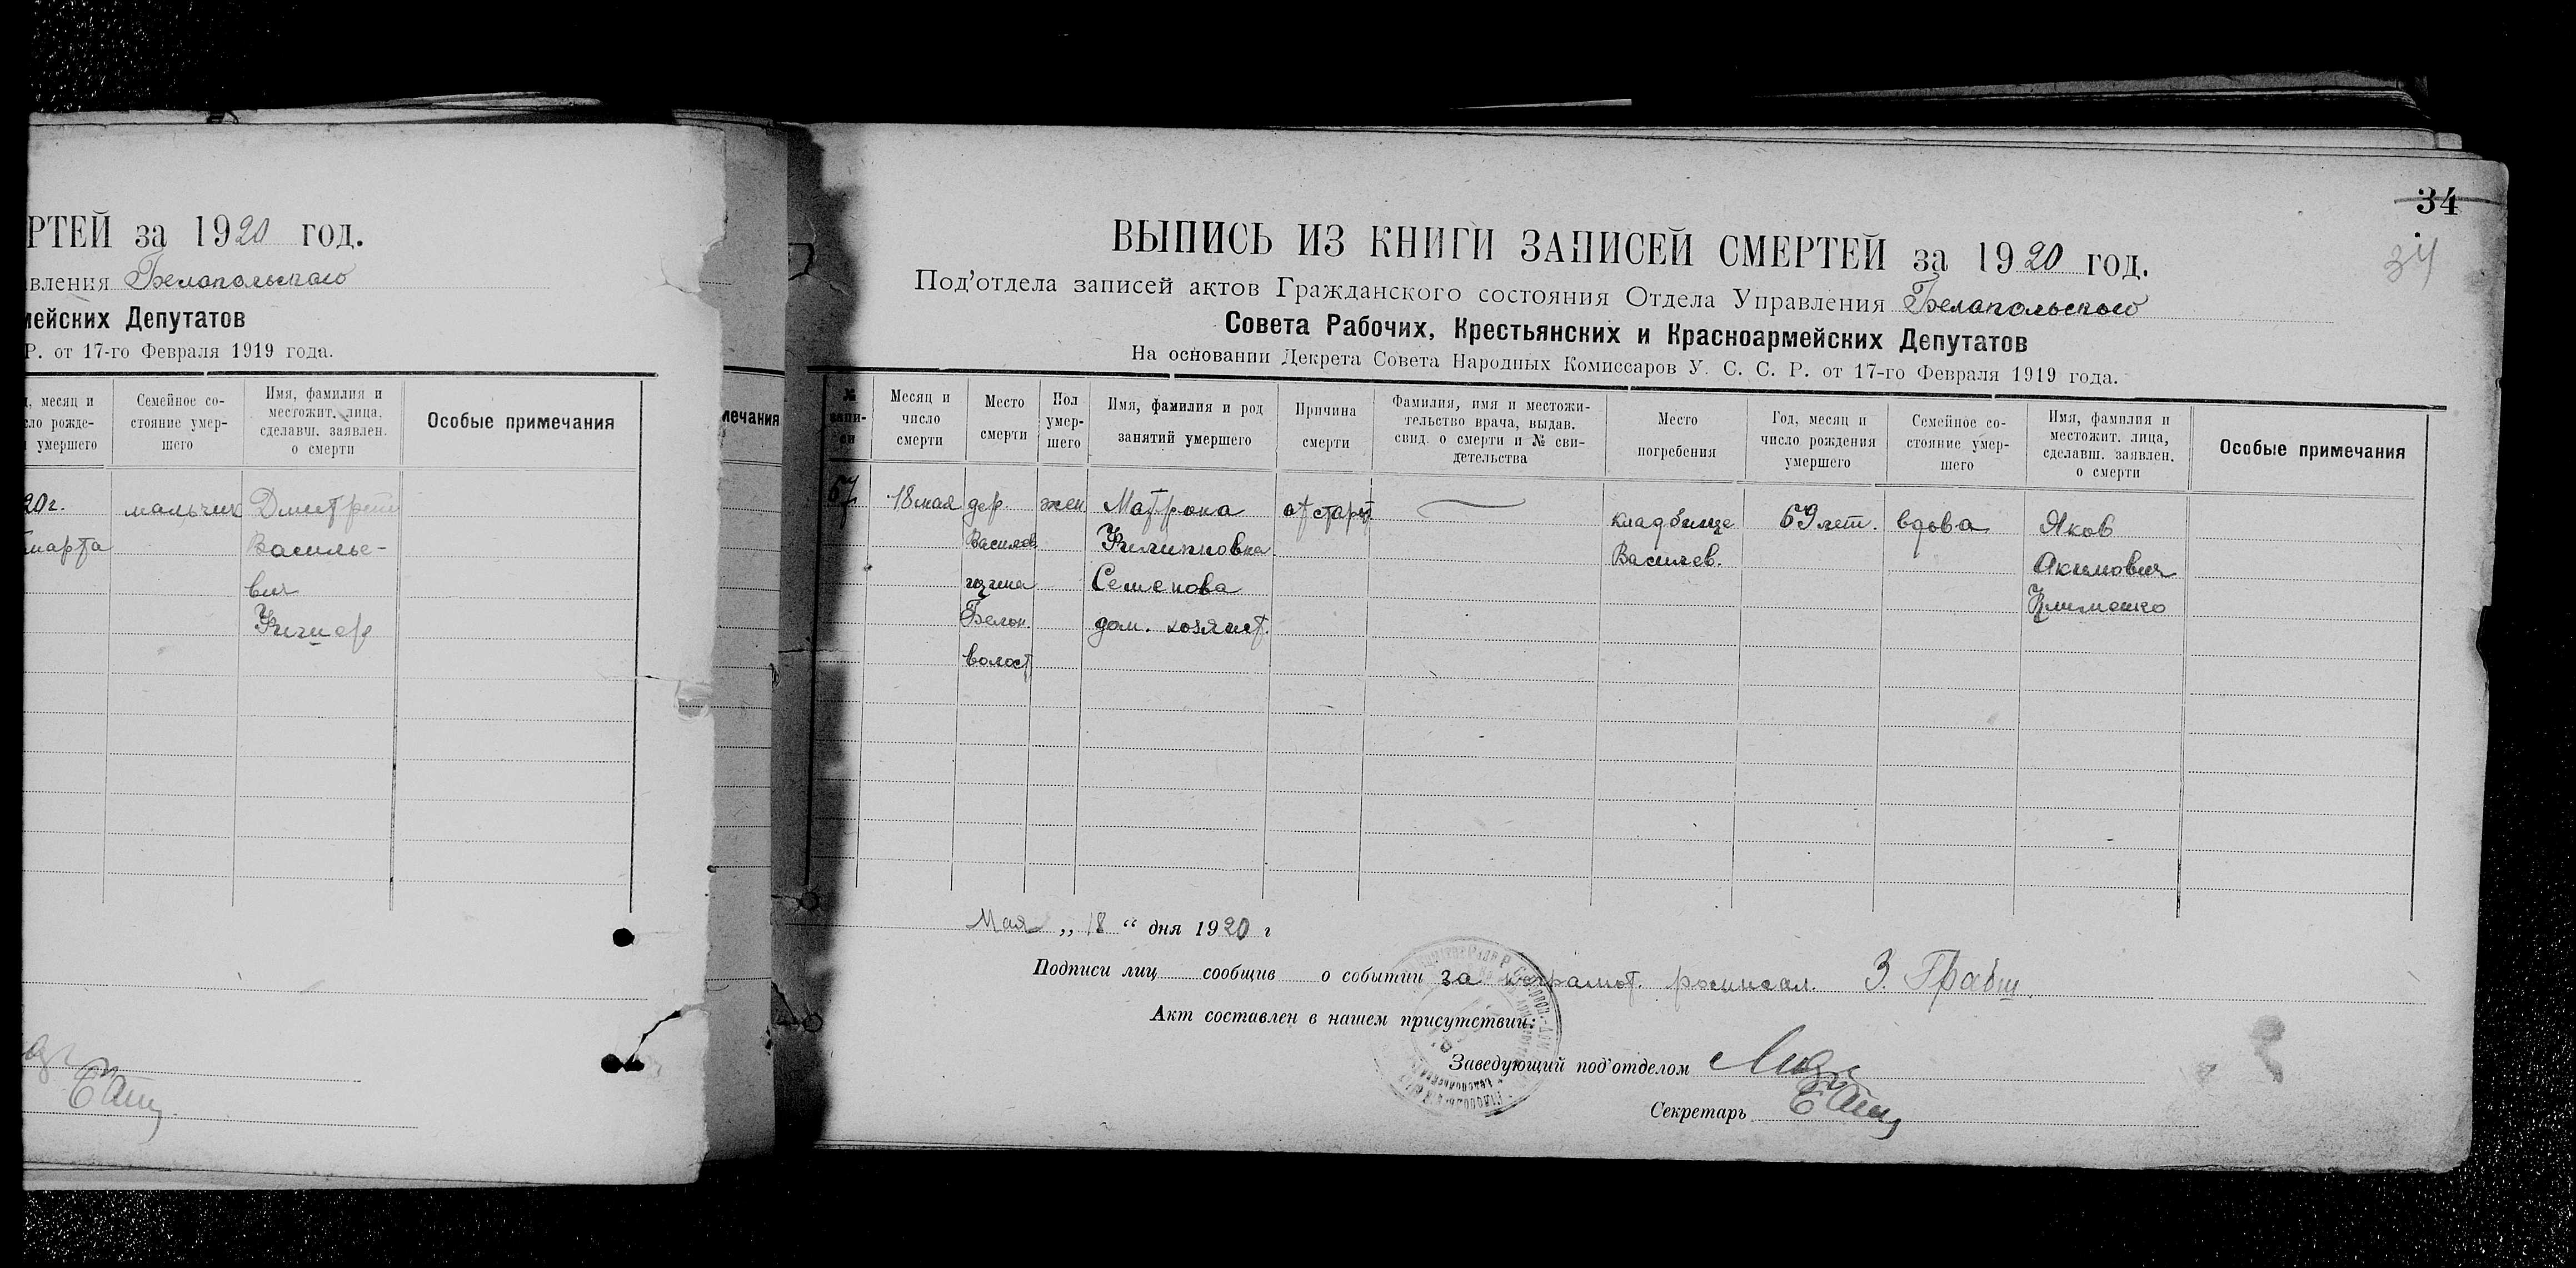 РТЕЙ за 1920 год.
вления Белопольского
мейских Депутатов
Р. от 17-го Февраля 1919 года.
, месяц и
сло рожде-
умершего
Семейное со-
стояние умер-
шего
Имя, фамилия и
местожит. лица,
сделавш. заявлен.
о смерти
Особые примечания
20г.
марта
мальчик
Дмитрий
Василье-
вич
мечания
34
34
ВЫПИСЬ ИЗ КНИГИ ЗАПИСЕЙ СМЕРТЕЙ за 1920 год.
Под'отдела записей актов Гражданского состояния Отдела Управления Белопольского
Совета Рабочих, Крестьянских и Красноармейских Депутатов
На основании Декрета Совета Народных Комиссаров У. С. С. Р. от 17-го Февраля 1919 года.
№
запи-
си
Месяц и
число
смерти
Место
смерти
Пол
умер-
шего
Имя, фамилия и род
занятий умершего
Причина
смерти
Фамилия, имя и местожи-
тельство врача, выдав.
свид. о смерти и № сви-
детельства
Место
погребения
Год, месяц и
число рождения
умершего
Семейное со-
стояние умер-
шего
Имя, фамилия и
местожит. лица,
сделавш. заявлен.
о смерти
Особые примечания
67
18 мая
дер
Василев
щина
Белоп.
волост
жен
Матрона
Филипповна
Семенова
дом. хозяист.
от старос
кладбище
Василев.
69 лет.
вдова
Яков
Акимович
Клименко
Мая „ 18 “ дня 1920 г
Подписи лиц сообщив о событии за неграмот. росписал. З. Грабш
Акт составлен в нашем присутствии:
Заведующий под'отделом
Секретарь